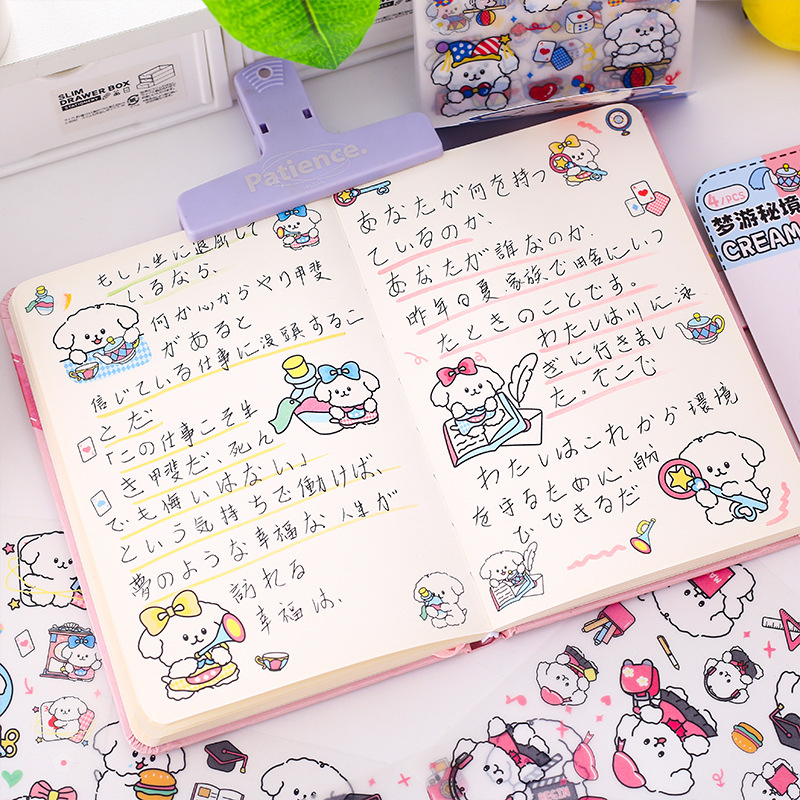 SLIM
DRAWER BOX
STATIONERY
Patience.
もし人生に退屈して
いるなら、
何か心からやり甲斐
があると
信じている仕事に没頭するこ
とだ
「この仕事こそ生
き甲斐だ、死ん
でも悔いはない」
という気持ちで働けば、
夢のような幸福な人生が
訪れる
幸福は、
あなたが何を持つ
ているのか、
あなたが誰なのか、
昨年の夏、家族で田舎にいつ
たときのことです。
わたしは川に泳
ぎに行きまし
た。そこで
わたしはこれから環境
を守るために、
できるだ
4/PCS
梦游秘境
CREAM
BEGIN